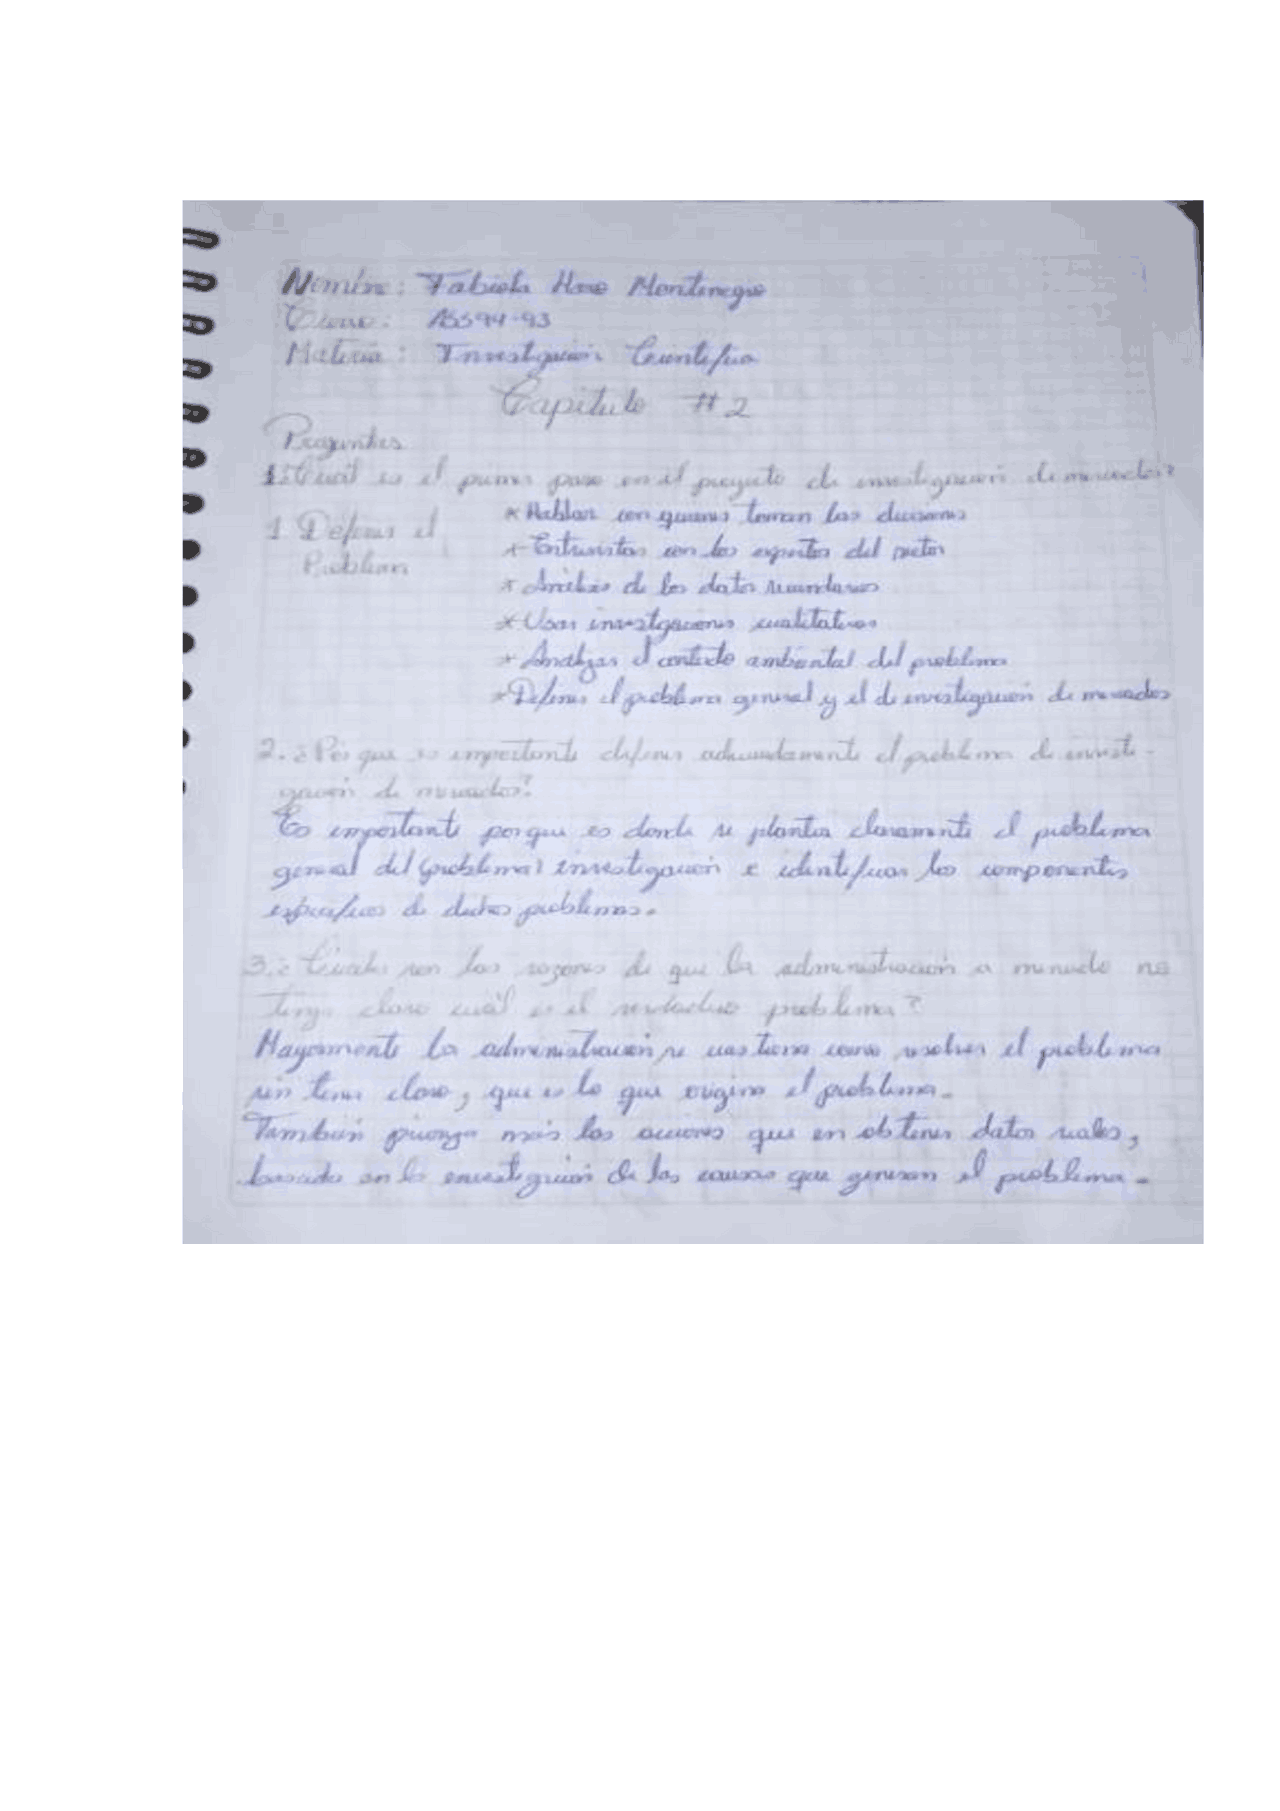 Nombre: Fabiola Haro Montenegro
15594-93
Materia: Investigación Cientifica
Capitulo #2
Preguntas
1.¿Cuál es el primer paso en el proyecto de investigación de mercados?
1 Definir el
Problema
* Hablar con quienes toman las decisiones
* Entrevistas con los expertos del sector
* Análisis de los datos secundarios
* Usar investigaciones cualitativas
* Analizar el contexto ambiental del problema
* Definir el problema general y el de investigación de mercados
2. ¿Por que es importante definir adecuadamente el problema de investi-
gación de mercados?
Es importante porque es donde se plantea claramente el problema
general del (problema) investigación e identificar los componentes
especificos de dichos problemas.
3.¿Cuáles son las razones de que la administración a menudo no
tenga claro cuál es el verdadero problema?
Mayormente la administración se cuestiona como resolver el problema
sin tener claro, que es lo que origina el problema.
También prioriza más las acciones que en obtener datos reales,
basada en la investigación de las causas que generan el problema.